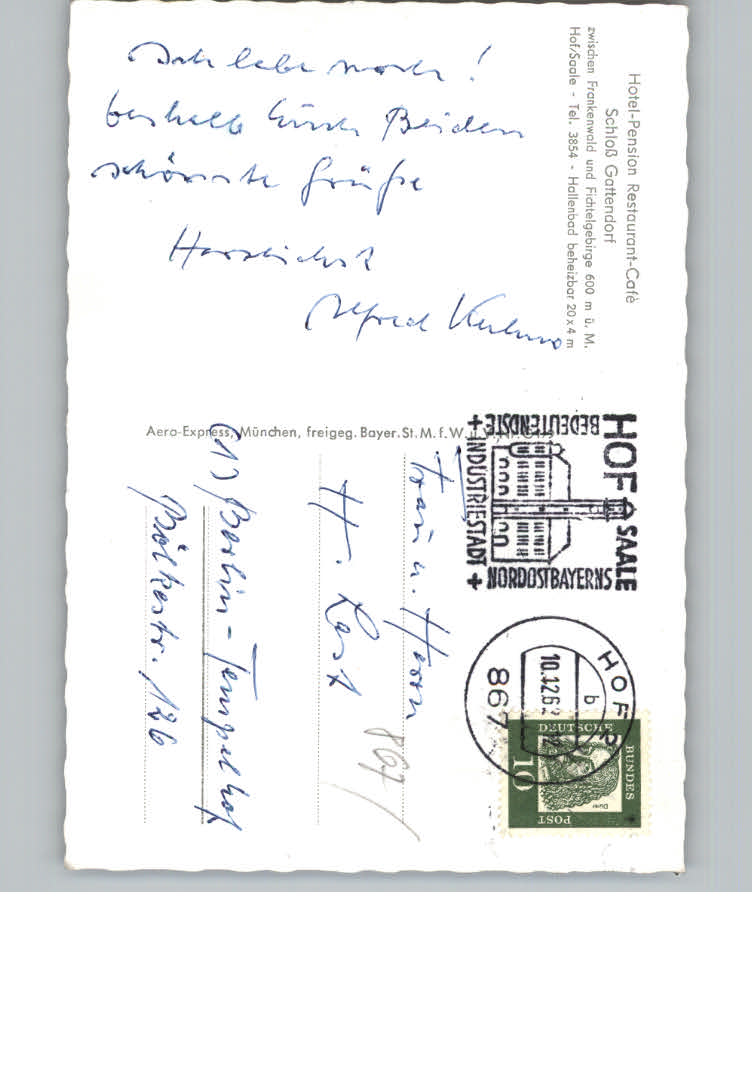 Ich lebe noch!
deshalb Euch Beiden
schönste Grüße
Herzlichst
Alfred
Hotel-Pension Restaurant-Café
Schloß Gattendorf
zwischen Frankenwald und Fichtelgebirge 600 m ü. M.
Hof/Saale - Tel. 3854 - Hallenbad beheizbar 20 x 4 m
Aero-Express, München, freigeg. Bayer. St. M. f. W.
HOF SAALE
BEDEUTENDSTE
INDUSTRIESTADT
NORDOSTBAYERNS
HOF
867
10.12.62
b
DEUTSCHE
BUNDES
POST
10
Dürer
Frau u. Herrn
H.
(1) Berlin-Tempelhof
Bölkestr. 126
867